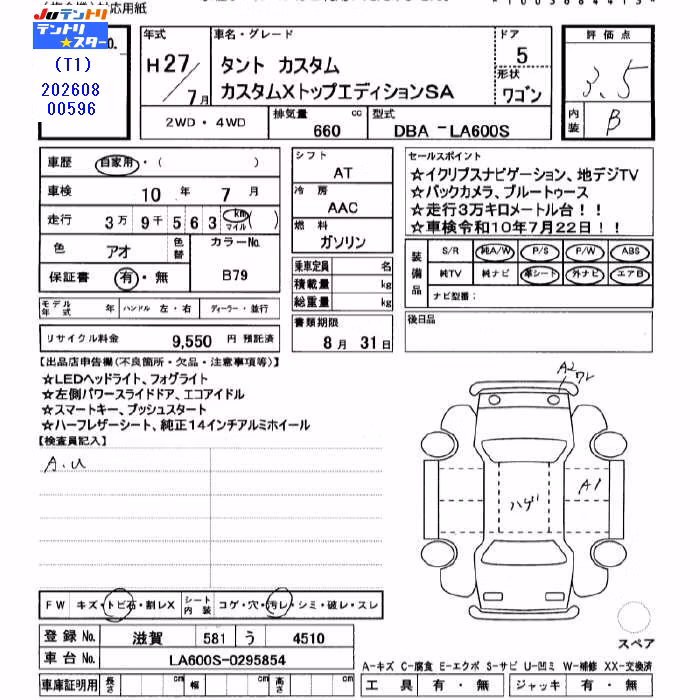 対応用紙
Juテントリ
テントリ
★スター
(T1)
202608
00596
No.
年式 H27/7月
車名・グレード タント カスタム
カスタムXトップエディションSA
ドア 5
形状 ワゴン
評価点 3.5
内装 B
2WD・4WD
排気量 660 cc
型式 DBA -LA600S
車歴 自家用・( )
車検 10 年 7 月
走行 3万 9千 5 6 3 km マイル ( )
色 アオ 色替 カラーNo. B79
保証書 有・無
モデル年式 年 ハンドル 左・右 ディーラー・並行
リサイクル料金 9,550 円 預託済
シフト AT
冷房 AAC
燃料 ガソリン
乗車定員 名
積載量 kg
総重量 kg
書類期限
8月 31日
セールスポイント
☆イクリプスナビゲーション、地デジTV
☆バックカメラ、ブルートゥース
☆走行3万キロメートル台!!
☆車検令和10年7月22日!!
装備品 S/R 純A/W P/S P/W ABS
純TV 純ナビ 革シート 外ナビ エアB
ナビ型番:
後日品
【出品店申告欄(不良箇所・欠品・注意事項等)】
☆LEDヘッドライト、フォグライト
☆左側パワースライドドア、エコアイドル
☆スマートキー、プッシュスタート
☆ハーフレザーシート、純正14インチアルミホイール
【検査員記入】
A.U
A2
ワレ
ハゲ
A1
FW キズ・トビ石・割レX シート内装 コゲ・穴・汚レ・シミ・破レ・スレ
スペア
登録No. 滋賀 581 う 4510
車台No. LA600S-0295854
車庫証明用 長さ cm 幅 cm 高さ cm
A-キズ C-腐食 E-エクボ S-サビ U-凹ミ W-補修 XX-交換済
工具 有・無 ジャッキ 有・無